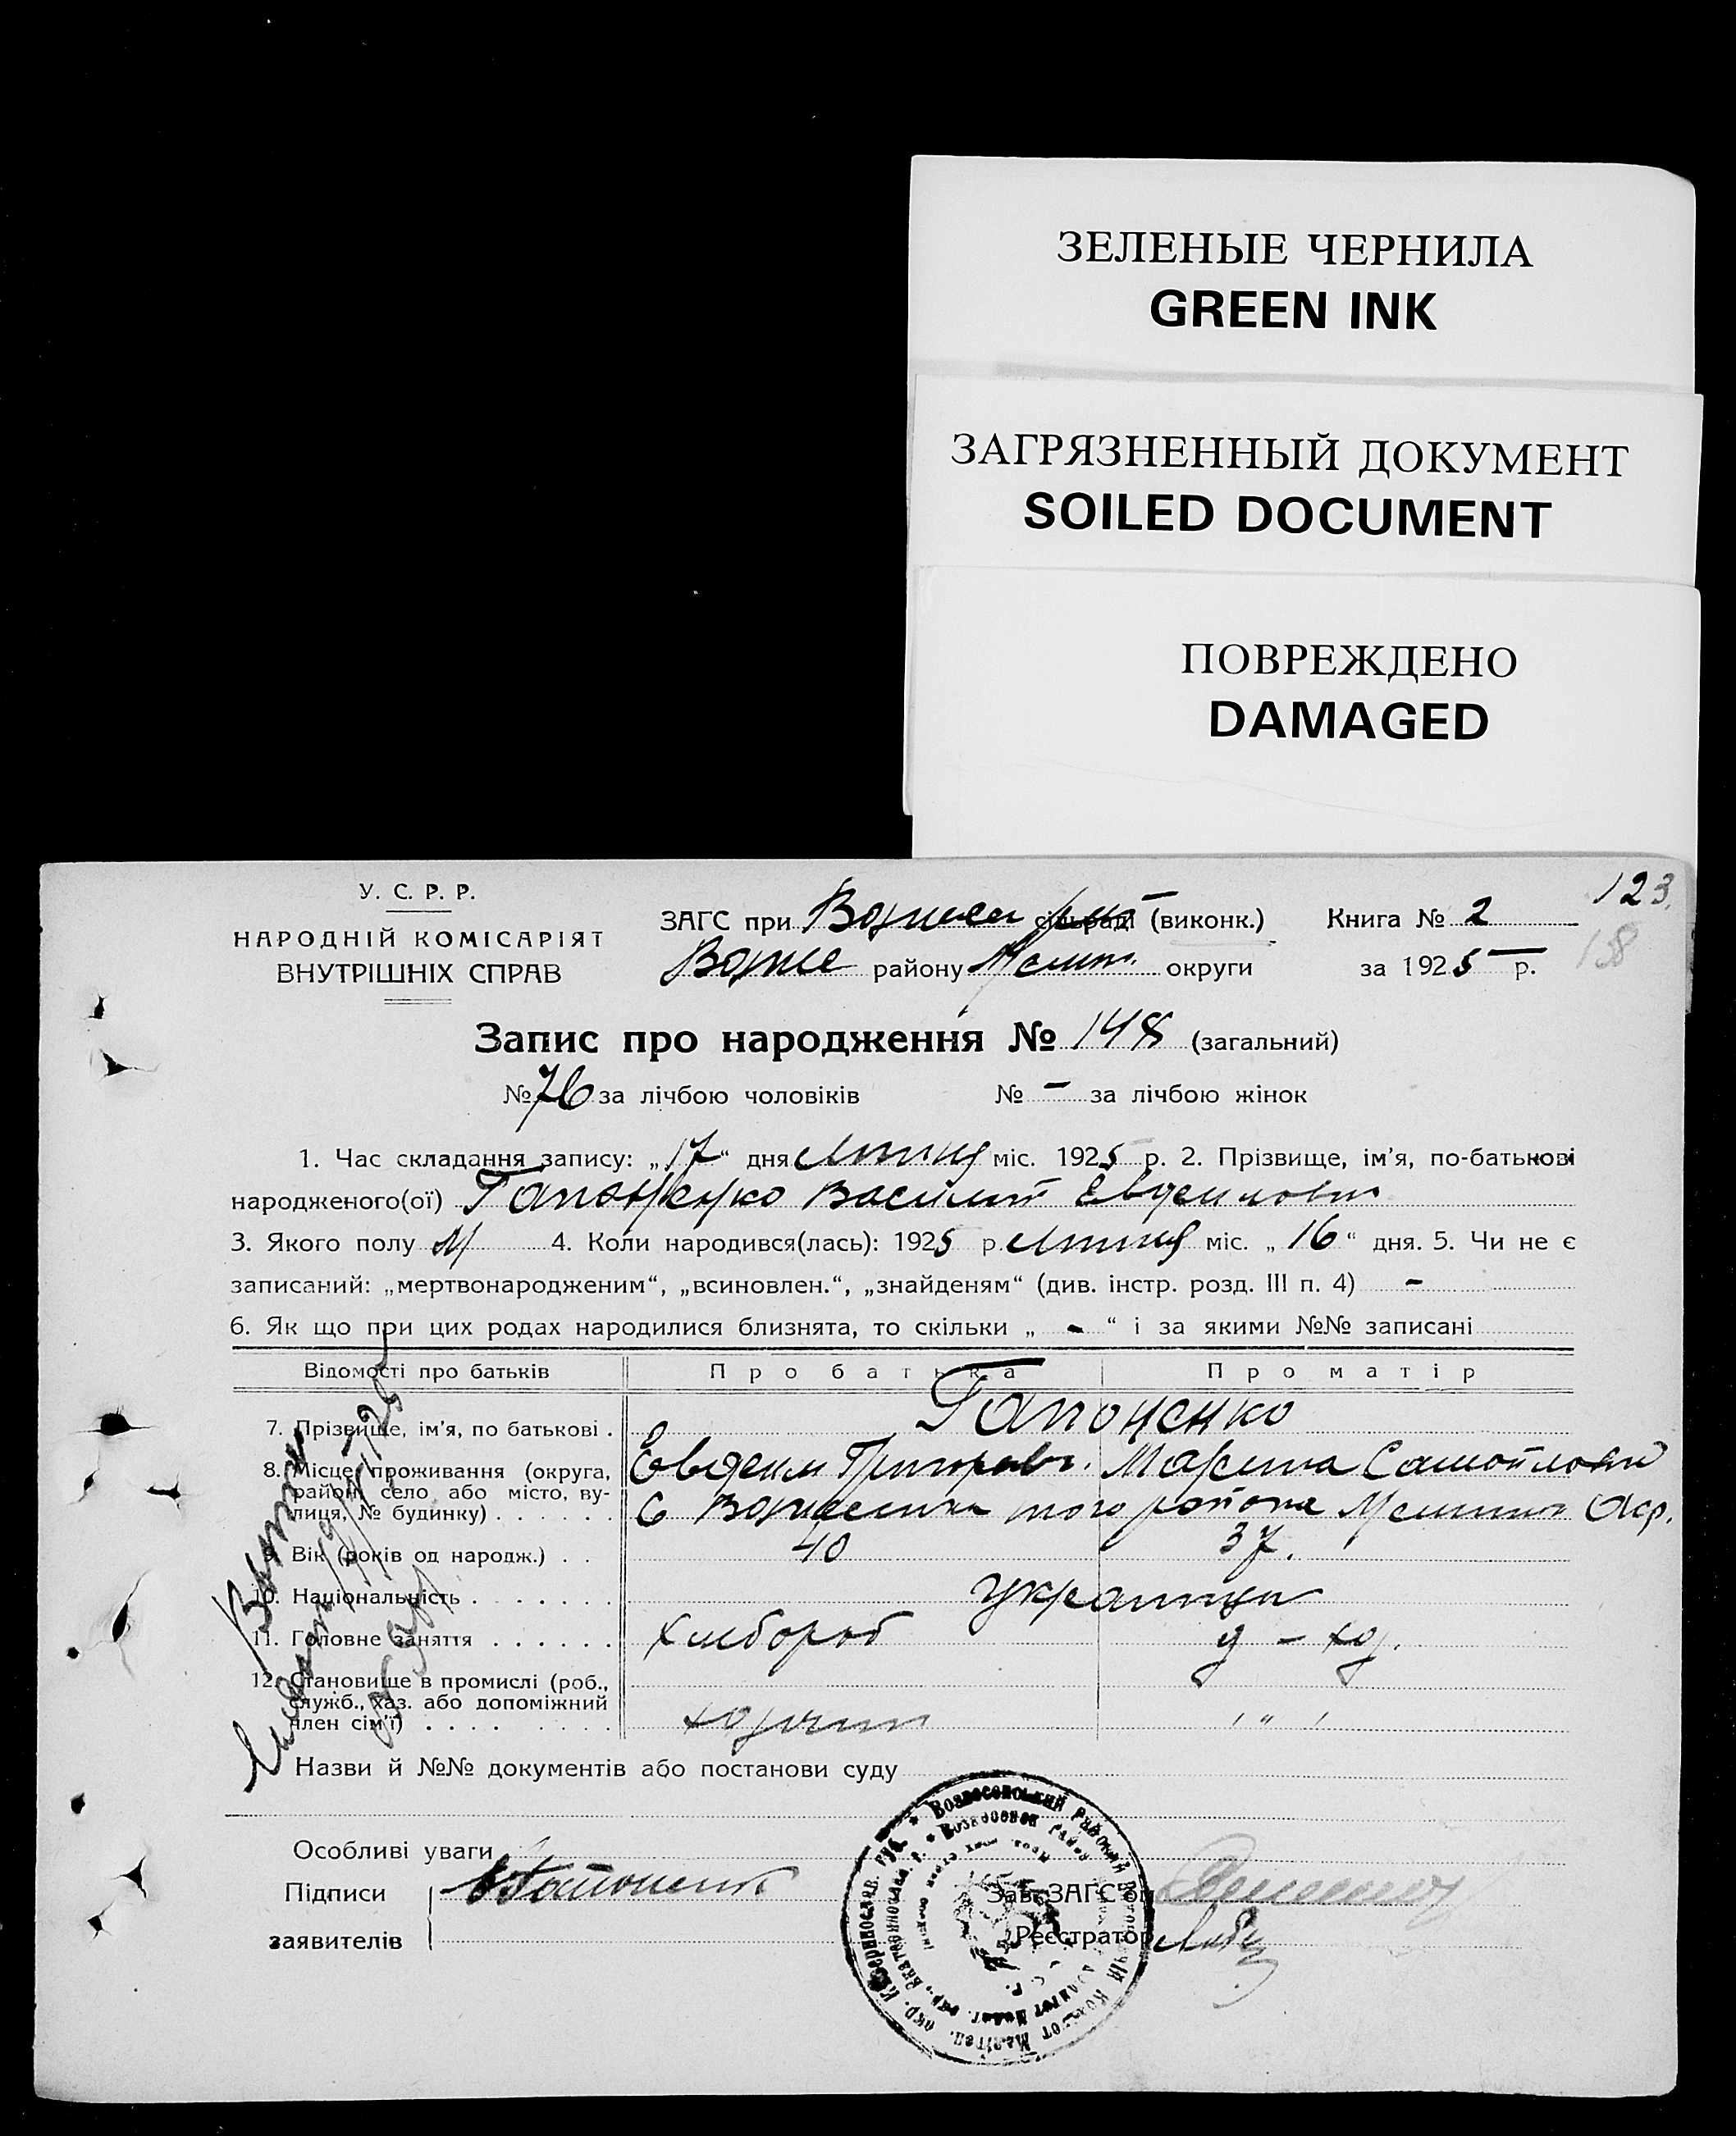 ЗЕЛЕНЫЕ ЧЕРНИЛА
GREEN INK
ЗАГРЯЗНЕННЫЙ ДОКУМЕНТ
SOILED DOCUMENT
ПОВРЕЖДЕНО
DAMAGED
123
138
У. С. Р. Р.
НАРОДНІЙ КОМІСАРІЯТ
ВНУТРІШНІХ СПРАВ
ЗАГС при сільраді (виконк.) Книга № 2
району Мелит. округи за 1925 р.
Запис про народження № 148 (загальний)
№ 76 за лічбою чоловіків № – за лічбою жінок
1. Час складання запису: „17“ дня Липця міс. 1925 р. 2. Прізвище, ім'я, по-батькові
народженого(ої) Гапоненко Василий Евдокимович
3. Якого полу М 4. Коли народився(лась): 1925 р. Липця міс. „16“ дня. 5. Чи не є
записаний: „мертвонародженим“, „всиновлен.“, „знайденям“ (див. інстр. розд. III п. 4) –
6. Як що при цих родах народилися близнята, то скільки „ - “ і за якими №№ записані
Відомості про батьків Про батька Про матір
7. Прізвище, ім'я, по батькові . Гапоненко
8. Місце проживання (округа, Евдоким Григоров. Марина Самойловна
район, село або місто, ву-
лиця, № будинку) . . . . . . С того района Окр.
9. Вік (років од народж.) . . 40 37.
10. Національність . . . . . . . українці
11. Головне заняття . . . . . . хлебороб д – хоз.
12. Становище в промислі (роб.,
служб., хаз. або допоміжний
член сім'ї) . . . . хозяин "
Назви й №№ документів або постанови суду
Особливі уваги
Підписи Гапоненк
заявителів
Зав. ЗАГС'ом
Реєстратор